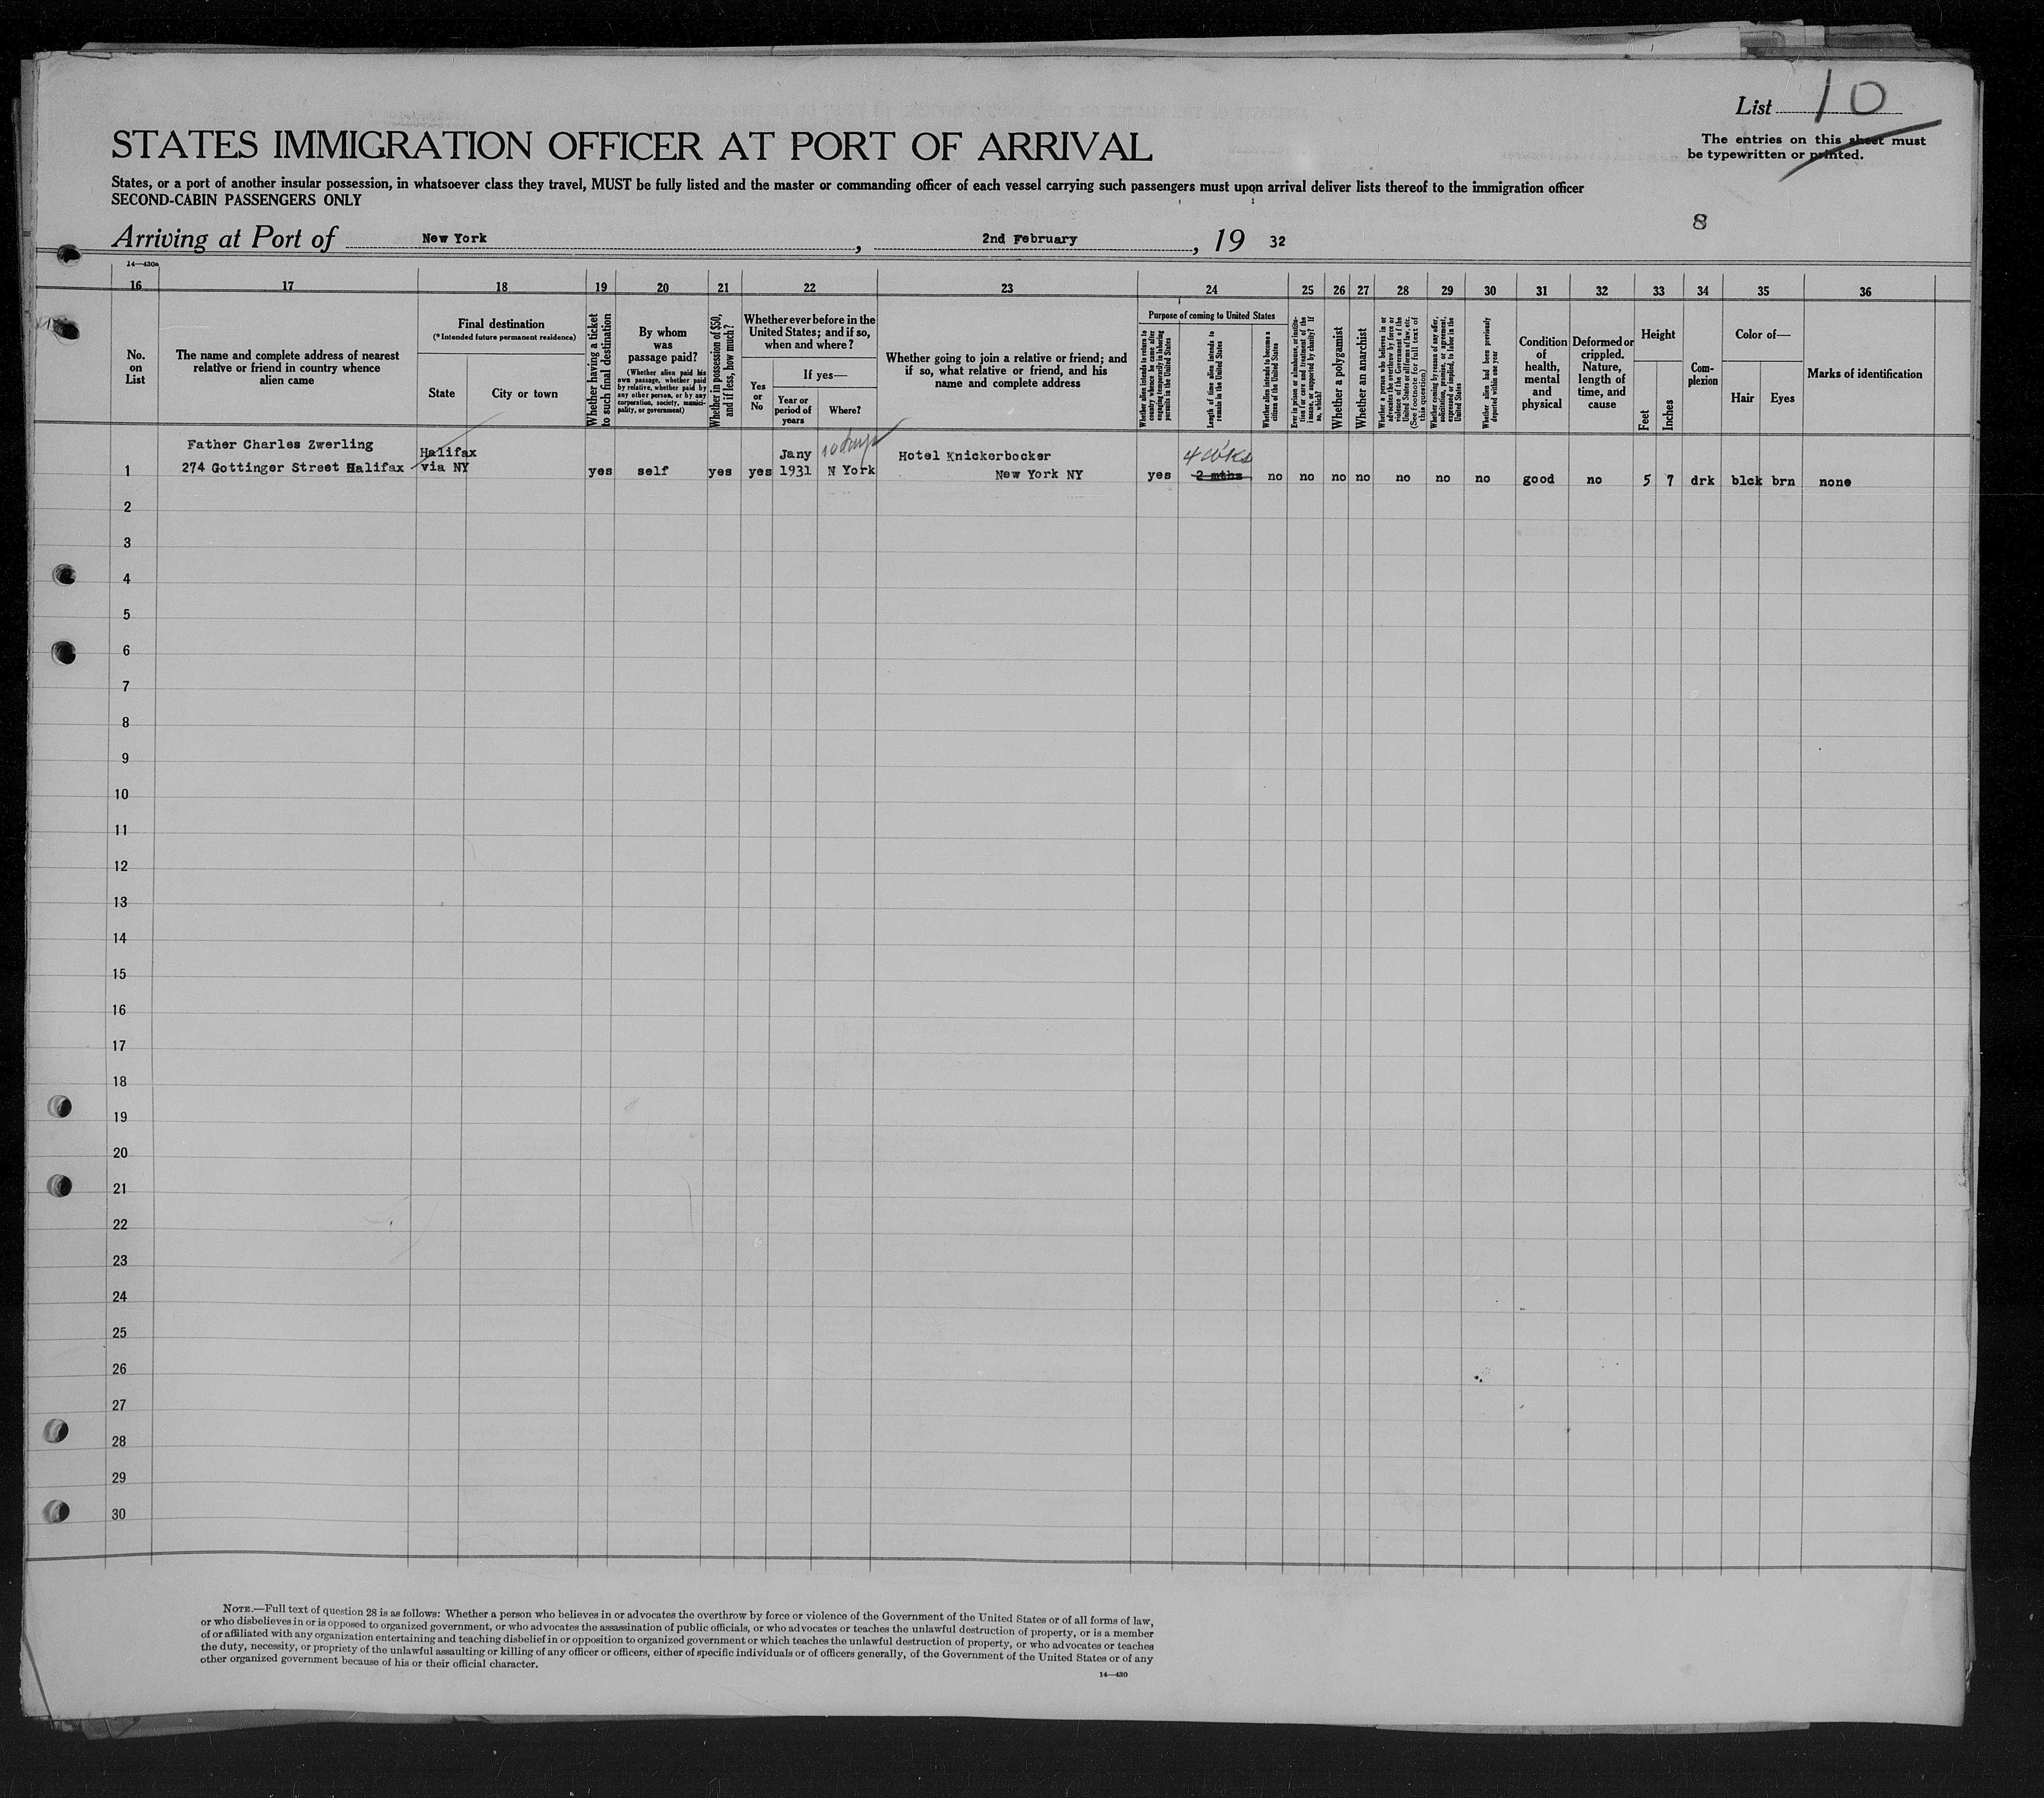 List 10
The entries on this sheet must
be typewritten or printed.
STATES IMMIGRATION OFFICER AT PORT OF ARRIVAL
States, or a port of another insular possession, in whatsoever class they travel, MUST be fully listed and the master or commanding officer of each vessel carrying such passengers must upon arrival deliver lists thereof to the immigration officer
SECOND-CABIN PASSENGERS ONLY
8
Arriving at Port of New York, 2nd February, 19 32
14—430a
16 17 18 19 20 21 22 23 24 25 26 27 28 29 30 31 32 33 34 35 36
No.
on
List
The name and complete address of nearest
relative or friend in country whence
alien came
Final destination
(*Intended future permanent residence)
State
City or town
Whether having a ticket
to such final destination
By whom
was
passage paid?
(Whether alien paid his
own passage, whether paid
by relative, whether paid by
any other person, or by any
corporation, society, munici-
pality, or government)
Whether in possession of $50,
and if less, how much?
Whether ever before in the
United States; and if so,
when and where?
Yes
or
No
If yes—
Year or
period of
years
Where?
Whether going to join a relative or friend; and
if so, what relative or friend, and his
name and complete address
Purpose of coming to United States
Whether alien intends to return to
country whence he came after
engaging temporarily in laboring
pursuits in the United States
Length of time alien intends to
remain in the United States
Whether alien intends to become a
citizen of the United States
Ever in prison or almshouse, or institu-
tion for care and treatment of the
insane, or supported by charity? If
so, which?
Whether a polygamist
Whether an anarchist
Whether a person who believes in or
advocates the overthrow by force or
violence of the Government of the
United States or all forms of law, etc.
(See footnote for full text of
this question)
Whether coming by reason of any offer,
solicitation, promise, or agreement,
expressed or implied, to labor in the
United States
Whether alien had been previously
deported within one year
Condition
of
health,
mental
and
physical
Deformed or
crippled.
Nature,
length of
time, and
cause
Height
Feet
Inches
Com-
plexion
Color of—
Hair
Eyes
Marks of identification
Father Charles Zwerling Halifax Jany 10 days Hotel Knickerbocker 4 wks
1 274 Gottinger Street Halifax via NY yes self yes yes 1931 N York New York NY yes 2 mths no no no no no no no good no 5 7 drk blck brn none
2
3
4
5
6
7
8
9
10
11
12
13
14
15
16
17
18
19
20
21
22
23
24
25
26
27
28
29
30
NOTE.—Full text of question 28 is as follows: Whether a person who believes in or advocates the overthrow by force or violence of the Government of the United States or of all forms of law,
or who disbelieves in or is opposed to organized government, or who advocates the assassination of public officials, or who advocates or teaches the unlawful destruction of property, or is a member
of or affiliated with any organization entertaining and teaching disbelief in or opposition to organized government or which teaches the unlawful destruction of property, or who advocates or teaches
the duty, necessity, or propriety of the unlawful assaulting or killing of any officer or officers, either of specific individuals or of officers generally, of the Government of the United States or of any
other organized government because of his or their official character.
14—430